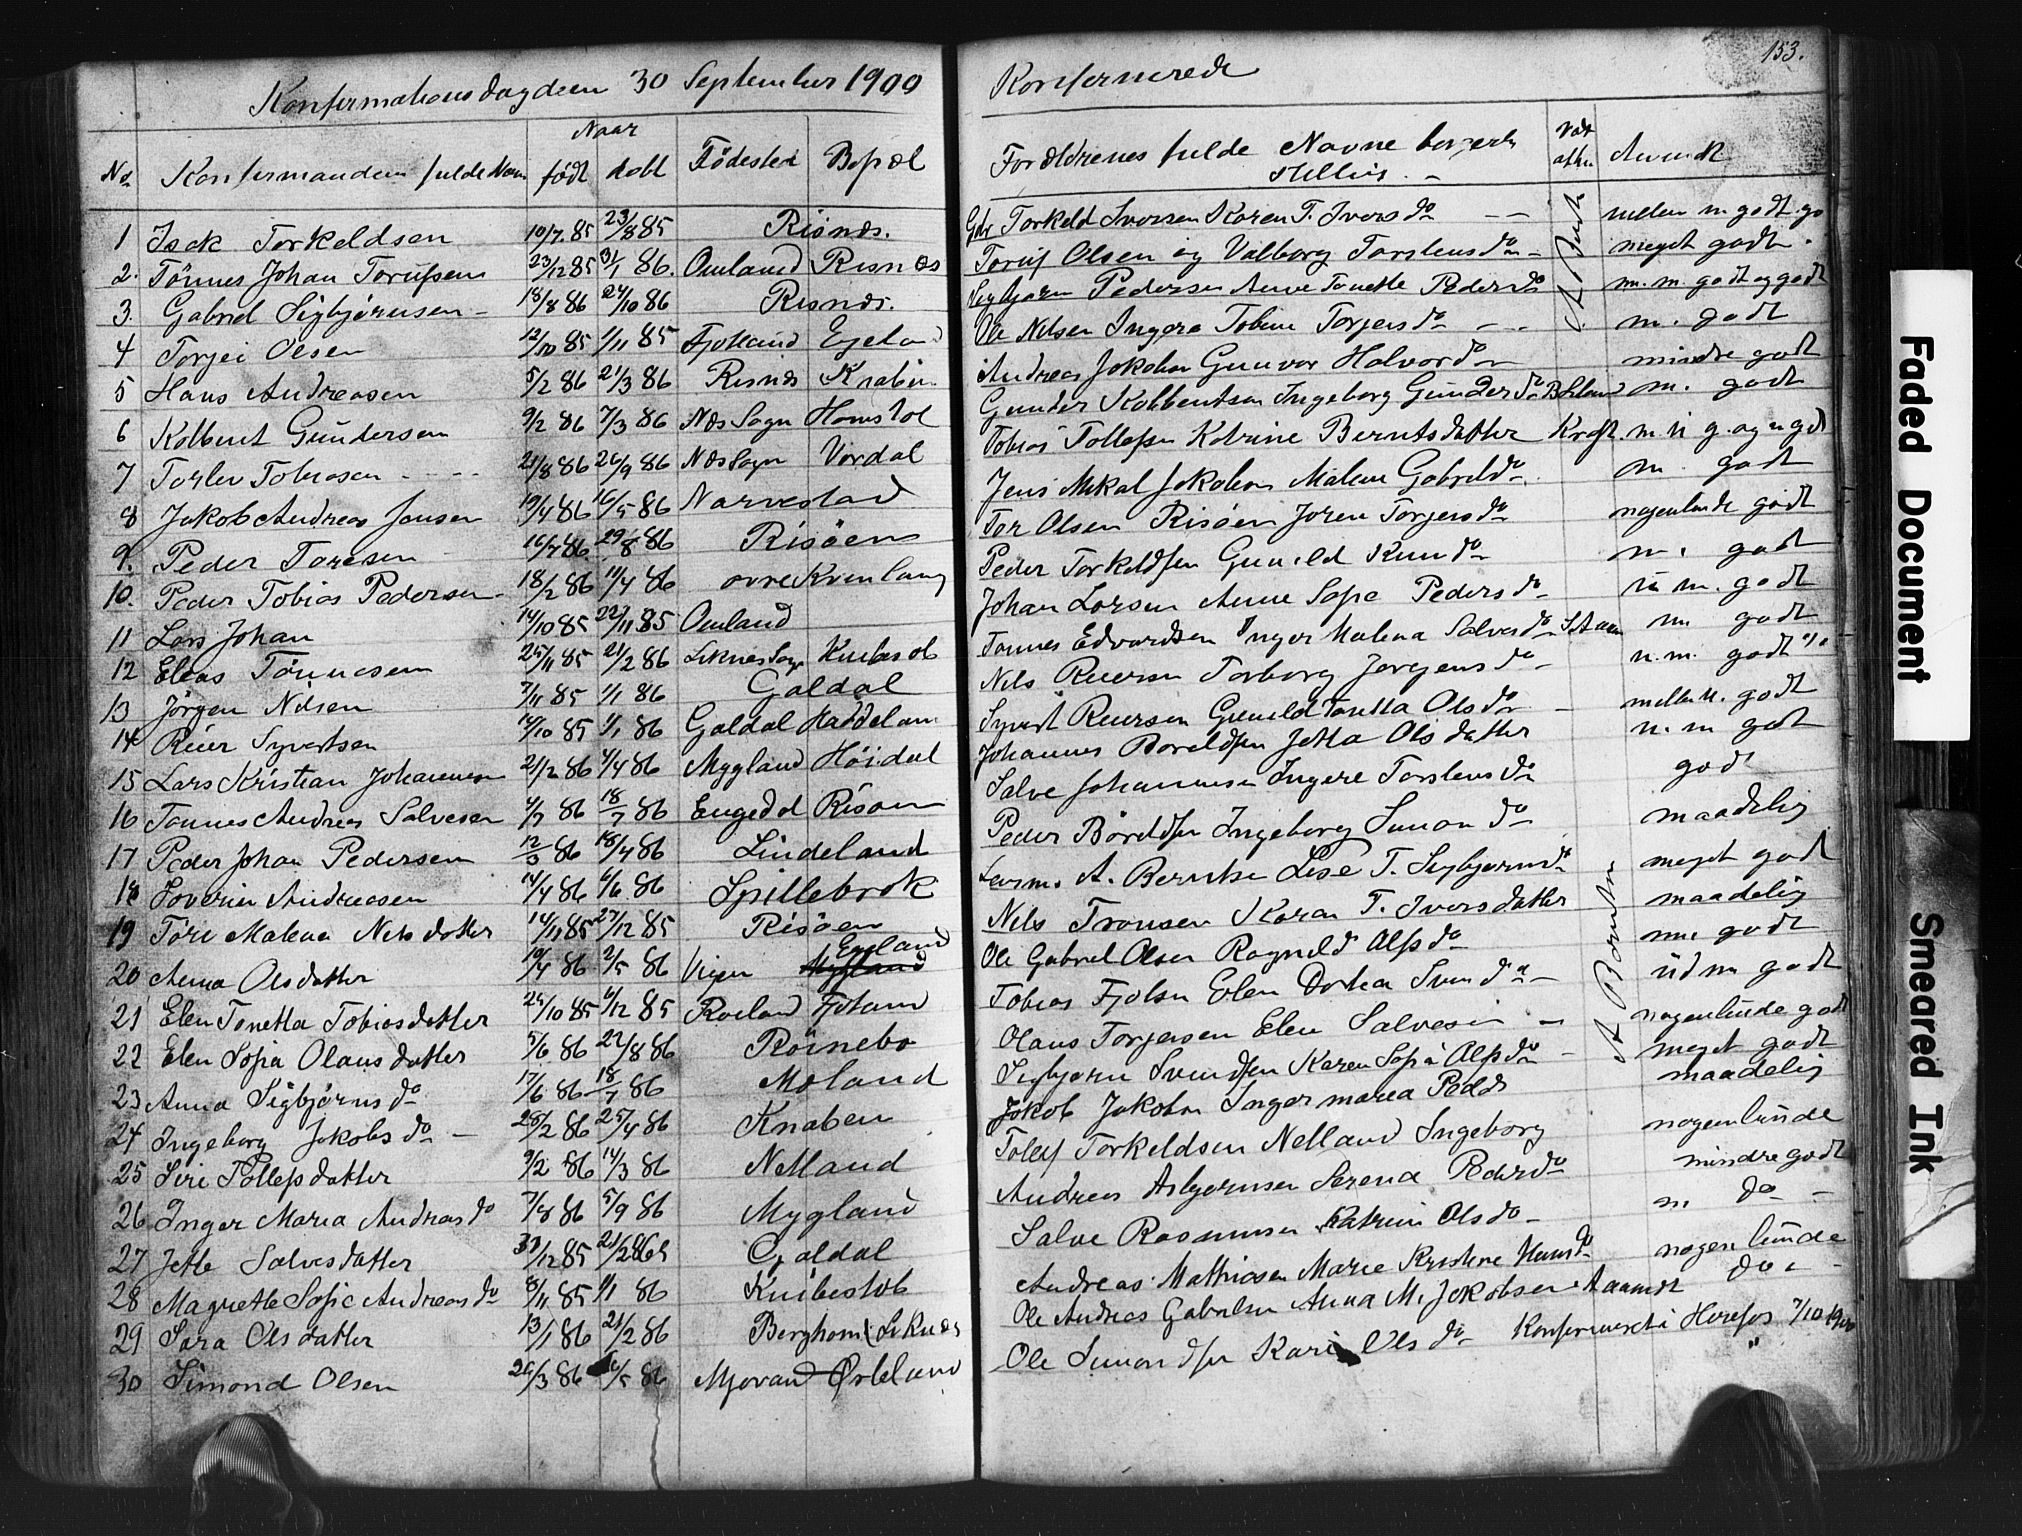 Konfirmationsdag den 30 September 1900
No Konfirmandens fulde Navn Naar født døbt Fødested Bopæl
1 Isak Torkeldsen 10/7. 85 23/8 85 Risnæs.
2. Tönnes Johan Torufsen 23/12 85 3/1 86. Omland Risnæs
3. Gabriel Sigbjørnsen 18/8 86 24/10 86 Risnæs.
4 Torjei Olsen 12/10 85 1/11 85 Fjotland Egeland
5 Hans Andreasen 5/2 86 21/3 86 Risnæs Knaben
6 Kolbent Gundersen 9/2 86 7/3 86 Næs Sogn Homstøl
7 Torlev Tobiasen 21/8 86 26/9 86 Næs Sogn Vordal
8 Jakob Andreas Jensen 19/4 86 16/5 86 Narvestad
9. Peder Toresen 16/7 86 29/8 86 Risöen
10. Peder Tobias Pedersen 18/2 86 11/4 86 øvre Kvinlaug
11 Lars Johan 14/10 85 22/11 85 Omland
12 Elias Tönnesen 25/11 85 21/2 86 Liknes Sogn
13 Jörgen Nilsen 7/11 85 1/1 86 Galdal
14 Reier Syvertsen 14/10 85 1/1 86 Galdal Haddeland
15 Lars Kristian Johannesen 21/2 86 4/4 86 Mygland Höidal
16 Tønnes Andreas Salvesen 4/7 86 18/7 86 Engedal Risøen
17 Peder Johan Pedersen 12/3 86 18/4 86 Lindeland
18 Soverin Andreasen 14/4 86 6/6 86 Spillebrok
19 Töre Malena Nilsdatter 14/11 85 27/12 85 Risöen
20 Anna Olsdatter 19/4 86 2/5 86 Egeland Mygland
21 Elen Tonetta Tobiasdatter 24/10 85 6/12 85 Roeland Fjotland
22 Elen Sofia Olausdatter 5/6 86 22/8 86 Röinebo
23 Anna Sigbjørnsdo 17/6 86 18/7 86 Moland
24 Ingeborg Jakobsdo 25/2 86 25/4 86 Knaben
25 Siri Tollefsdatter 9/2 86 14/3 86 Netland
26 Inger Maria Andreasdo 7/8 86 5/9 86 Mygland
27 Jette Salvesdatter /12 85 21/2 86 Galdal
28 Magrethe Sofie Andreasdo 8/11 85 1/1 86 Knibestøl
29 Sara Olsdatter 13/1 86 21/2 86 Berghom (Liknæs
30 Simond Olsen 26/3 86 /5 86 Mjovand
153.
Konfirmerede
Forældrenes fulde Navne
Stilling
Gdr Torkeld Iversen Karen T. Iversdo meget godt
Toruf Olsen og Valborg Torstensdo meget godt
Sigbjørn Pedersen Anne Tonette Pedersdo m. m. godt og godt
Ole Nilsen Ingera Tobine Torjersdo m. godt
Andreas Jakobsen Gunvor Halvordo mindre godt
Gunder Kolbentsen Ingeborg Gundersdo m. godt
Tobias Tollefsen Katrine Berntsdatter Kraft
Jens Mikal Jakobsen Malene Gabrieldo m. godt
Tor Olsen Risöen Joren Torjersdo nogenlunde godt
Peder Torkeldsen Gunild Knudo m. godt
Johan Larsen Anne Sofie Pedersdo u m. godt
Tønnes Edvardsen Inger Malena Salvesdo m. godt
Nils Reiersen Torborg Jørgensdo u. m. godt
Syvert Reiersen Gunild Tonetta Olsdo godt
Johannes Boreldsen Jetta Olsdatter u. m godt
Salve Johannesen Ingere Torstensdo godt
Peder Böreldsen Ingeborg Simondo maadelig
A. Berntsen Lise T. Sigbjørnsdo meget godt
Nils Tronsen Karen T. Iversdatter maadelig
Ole Gabriel Olsen Ragnild Alfsdo godt
Tobias Fjelsen Elen Dortea Svendo godt
Olaus Torjersen Elen Salvesen nogenlunde godt
Sigbjørn Svendsen Karen Sofia Alfsdo meget godt
Jakob Jakobsen Inger maria Pedd maadelig
Tollef Torkeldsen Netland Ingeborg nogenlunde
Andreas Asbjørnsen Serena Pedersdo mindre godt
Salve Rasmussen Katrine Olsdo m do
Andreas Mathiasen Marie Kristine Hansdo nogenlunde
Ole Andreas Gabrielsen Anna M. Jakobsen do
Ole Simondsen Kari Olsdo Konfirmeret i Herefos 7/10 1900
A Berntsen
Faded Document
Smeared Ink